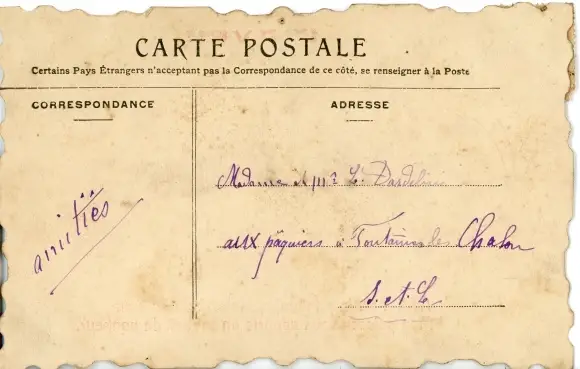 CARTE POSTALE
Certains Pays Étrangers n'acceptant pas la Correspondance de ce côté, se renseigner à la Poste
CORRESPONDANCE
ADRESSE
amitiés
Madame et Mr L. Dardelin
aux pâquiers à Fontaines les Chalon
S. et L.